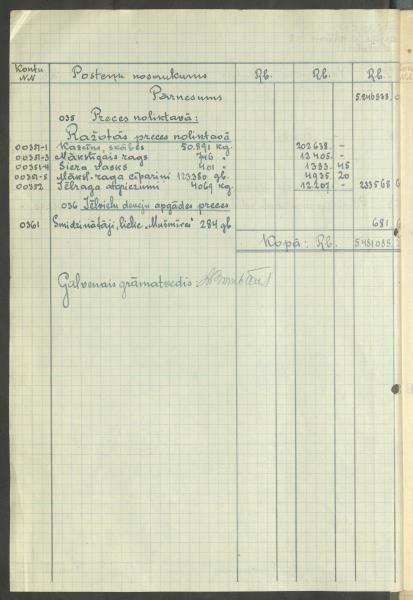 Kontu NN Posteņu nosaukums Rb. Rb. Rb.
Pārnesums 5.246.938,
035 Preces noliktavā:
Ražotās preces noliktavā
00351-1 Kazeīns, skābes 50.891 kg. 202 638. -
00351-3 Mākslīgais rags 746 " 12 405. -
00351-4 Siera vasks 401 " 1383. 45
00351-5 Māksl. raga cipariņi 123.380 gb. 4935. 20
00352 Tēlraga atgriezumi 4069 kg. 12.207 - 233568
036 Izlietu devēju apgādes preces
0361 Smidzinātāji, lielie "Mušmirei" 284 gb. 681
Kopā: Rb. 5.481.088,
Galvenais grāmatvedis: